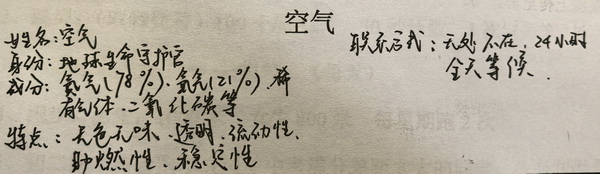 空气
姓名:空气
身份:地球生命守护官
成分:氮气(78%)、氧气(21%)、稀
有气体、二氧化碳等
特点:无色无味、透明、流动性、
助燃性、稳定性
联系方式:无处不在,24小时
全天等候.